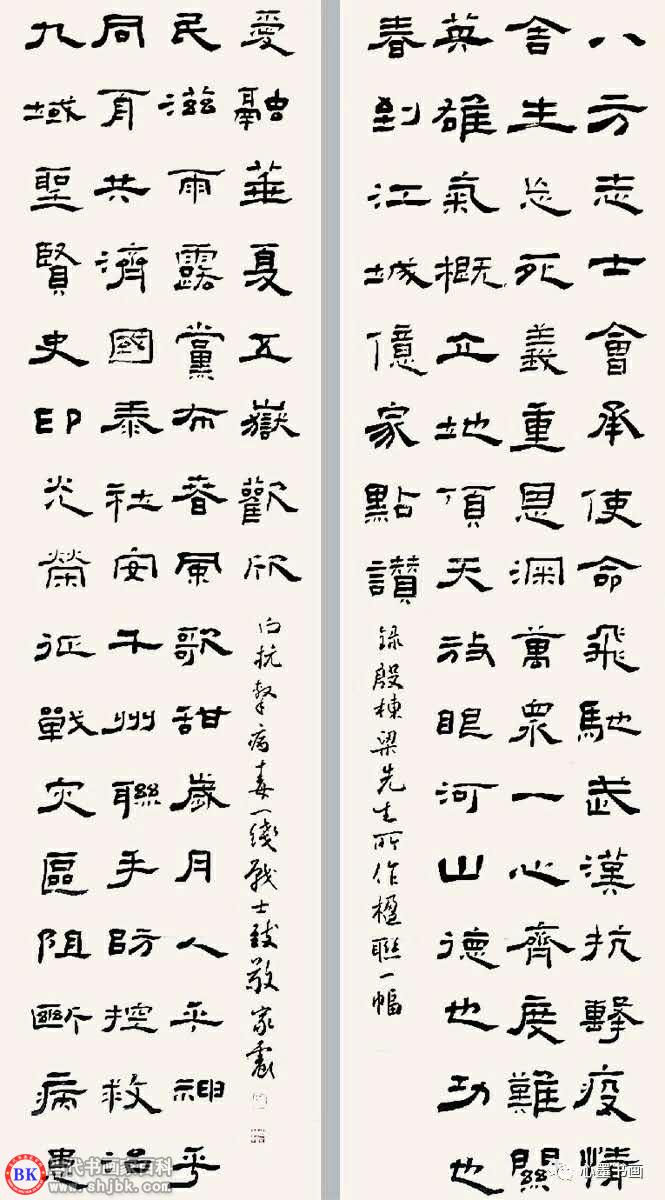 八方志士會承使命飛馳武漢抗擊疫情
舍生忘死義重恩深萬眾一心齊度難關
英雄氣概立地頂天放眼河山德也功也
春到江城億家點讚
録殷棟梁先生所作楹联一幅
九域聖賢史印光榮征戰灾區阻斷病患
同舟共濟國泰社安千州聯手防控救温
民滋雨露黨布春風歌甜歲月人乎神乎
愛融華夏五嶽歡欣
向抗擊病毒一线战士致敬 家
BK
当代书画家百科
www.shjbk.com
心墨书画